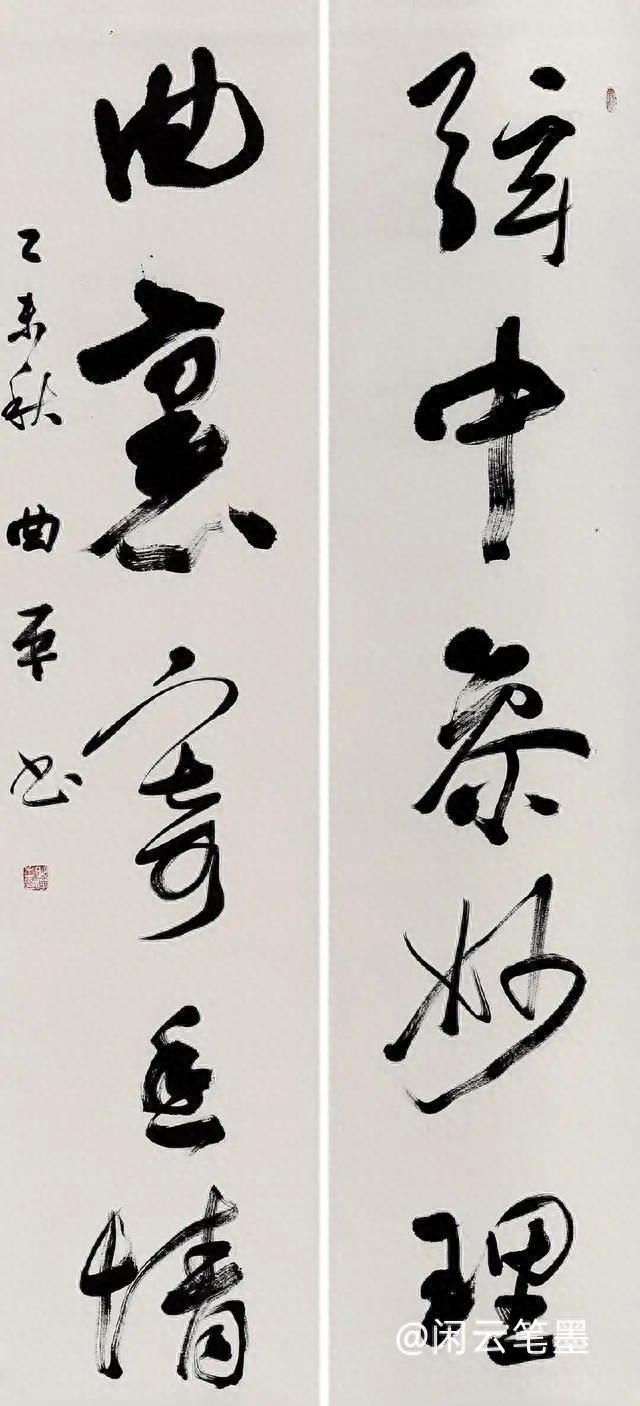 弦中参妙理
曲裏寄情
乙未秋 曲平书
@闲云笔墨